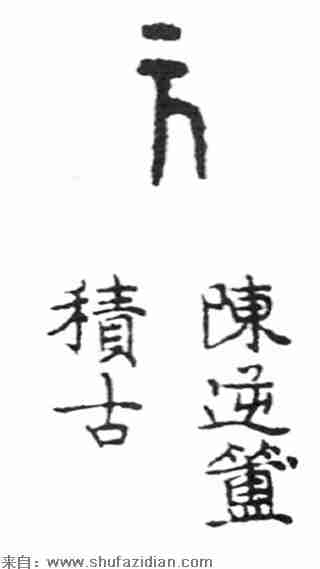 元
陳逆簠
積古
来自：www.shufazidian.com